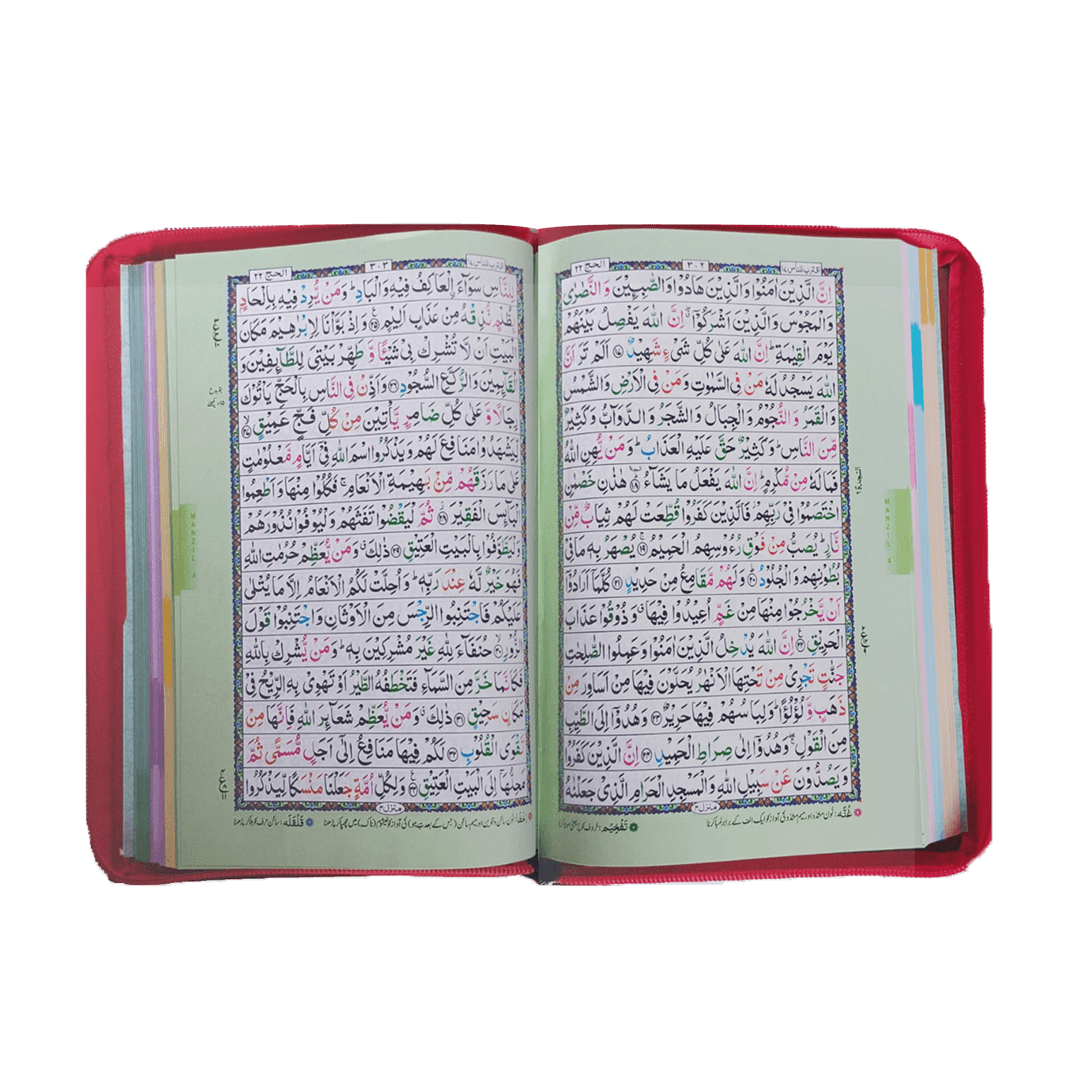 اقترب للناس ١٧
٣٠٢
الحج ٢٢
اِنَّ الَّذِيْنَ اٰمَنُوْا وَالَّذِيْنَ هَادُوْا وَالصّٰبِـِٕيْنَ وَالنَّصٰرٰى
وَالْمَجُوْسَ وَالَّذِيْنَ اَشْرَكُوْۤا ۖ اِنَّ اللّٰهَ يَفْصِلُ بَيْنَهُمْ
يَوْمَ الْقِيٰمَةِ ؕ اِنَّ اللّٰهَ عَلٰى كُلِّ شَىْءٍ شَهِيْدٌ ﴿۱۷﴾ اَلَمْ تَرَ اَنَّ
اللّٰهَ يَسْجُدُ لَهٗ مَنْ فِى السَّمٰوٰتِ وَمَنْ فِى الْاَرْضِ وَالشَّمْسُ
وَالْقَمَرُ وَالنُّجُوْمُ وَالْجِبَالُ وَالشَّجَرُ وَالدَّوَآبُّ وَكَثِيْرٌ
مِّنَ النَّاسِ ؕ وَكَثِيْرٌ حَقَّ عَلَيْهِ الْعَذَابُ ؕ وَمَنْ يُّهِنِ اللّٰهُ
فَمَا لَهٗ مِنْ مُّكْرِمٍ ؕ اِنَّ اللّٰهَ يَفْعَلُ مَا يَشَآءُ ﴿۱۸﴾ هٰذٰنِ خَصْمٰنِ
اخْتَصَمُوْا فِىْ رَبِّهِمْ فَالَّذِيْنَ كَفَرُوْا قُطِّعَتْ لَهُمْ ثِيَابٌ مِّنْ
نَّارٍ ؕ يُصَبُّ مِنْ فَوْقِ رُءُوْسِهِمُ الْحَمِيْمُ ﴿۱۹﴾ يُصْهَرُ بِهٖ مَا فِىْ
بُطُوْنِهِمْ وَالْجُلُوْدُ ﴿۲۰﴾ وَلَهُمْ مَّقَامِعُ مِنْ حَدِيْدٍ ﴿۲۱﴾ كُلَّمَاۤ اَرَادُوْۤا
اَنْ يَّخْرُجُوْا مِنْهَا مِنْ غَمٍّ اُعِيْدُوْا فِيْهَا ۗ وَذُوْقُوْا عَذَابَ
الْحَرِيْقِ ﴿۲۲﴾ اِنَّ اللّٰهَ يُدْخِلُ الَّذِيْنَ اٰمَنُوْا وَعَمِلُوا الصّٰلِحٰتِ
جَنّٰتٍ تَجْرِىْ مِنْ تَحْتِهَا الْاَنْهٰرُ يُحَلَّوْنَ فِيْهَا مِنْ اَسَاوِرَ مِنْ
ذَهَبٍ وَّلُؤْلُؤًا ؕ وَلِبَاسُهُمْ فِيْهَا حَرِيْرٌ ﴿۲۳﴾ وَهُدُوْۤا اِلَى الطَّيِّبِ
مِنَ الْقَوْلِ ۖ وَهُدُوْۤا اِلٰى صِرَاطِ الْحَمِيْدِ ﴿۲۴﴾ اِنَّ الَّذِيْنَ كَفَرُوْا
وَيَصُدُّوْنَ عَنْ سَبِيْلِ اللّٰهِ وَالْمَسْجِدِ الْحَرَامِ الَّذِىْ جَعَلْنٰهُ
MANZIL 4
٣٠٣
الحج ٢٢
لِلنَّاسِ سَوَآءَ ࣙالْعَاكِفُ فِيْهِ وَالْبَادِ ؕ وَمَنْ يُّرِدْ فِيْهِ بِاِلْحَادٍۭ
بِظُلْمٍ نُّذِقْهُ مِنْ عَذَابٍ اَلِيْمٍ ﴿۲۵﴾ وَاِذْ بَوَّاْنَا لِاِبْرٰهِيْمَ مَكَانَ
الْبَيْتِ اَنْ لَّا تُشْرِكْ بِىْ شَيْـًٔا وَّطَهِّرْ بَيْتِىَ لِلطَّآئِفِيْنَ وَ
الْقَآئِمِيْنَ وَالرُّكَّعِ السُّجُوْدِ ﴿۲۶﴾ وَاَذِّنْ فِى النَّاسِ بِالْحَجِّ يَاْتُوْكَ
رِجَالًا وَّعَلٰى كُلِّ ضَامِرٍ يَّاْتِيْنَ مِنْ كُلِّ فَجٍّ عَمِيْقٍ ﴿۲۷﴾
لِّيَشْهَدُوْا مَنَافِعَ لَهُمْ وَيَذْكُرُوا اسْمَ اللّٰهِ فِىْۤ اَيَّامٍ مَّعْلُوْمٰتٍ
عَلٰى مَا رَزَقَهُمْ مِّنْۢ بَهِيْمَةِ الْاَنْعَامِ ۚ فَكُلُوْا مِنْهَا وَاَطْعِمُوا
الْبَآئِسَ الْفَقِيْرَ ﴿۲۸﴾ ثُمَّ لْيَقْضُوْا تَفَثَهُمْ وَلْيُوْفُوْا نُذُوْرَهُمْ
وَلْيَطَّوَّفُوْا بِالْبَيْتِ الْعَتِيْقِ ﴿۲۹﴾ ذٰلِكَ ۗ وَمَنْ يُّعَظِّمْ حُرُمٰتِ اللّٰهِ
فَهُوَ خَيْرٌ لَّهٗ عِنْدَ رَبِّهٖ ؕ وَاُحِلَّتْ لَكُمُ الْاَنْعَامُ اِلَّا مَا يُتْلٰى
عَلَيْكُمْ فَاجْتَنِبُوا الرِّجْسَ مِنَ الْاَوْثَانِ وَاجْتَنِبُوْا قَوْلَ
الزُّوْرِ ﴿۳۰﴾ حُنَفَآءَ لِلّٰهِ غَيْرَ مُشْرِكِيْنَ بِهٖ ؕ وَمَنْ يُّشْرِكْ بِاللّٰهِ
فَكَاَنَّمَا خَرَّ مِنَ السَّمَآءِ فَتَخْطَفُهُ الطَّيْرُ اَوْ تَهْوِىْ بِهِ الرِّيْحُ فِىْ
مَكَانٍ سَحِيْقٍ ﴿۳۱﴾ ذٰلِكَ ۗ وَمَنْ يُّعَظِّمْ شَعَآئِرَ اللّٰهِ فَاِنَّهَا مِنْ
تَقْوَى الْقُلُوْبِ ﴿۳۲﴾ لَكُمْ فِيْهَا مَنَافِعُ اِلٰٓى اَجَلٍ مُّسَمًّى ثُمَّ
مَحِلُّهَاۤ اِلَى الْبَيْتِ الْعَتِيْقِ ﴿۳۳﴾ وَلِكُلِّ اُمَّةٍ جَعَلْنَا مَنْسَكًا لِّيَذْكُرُوا
MANZIL 4